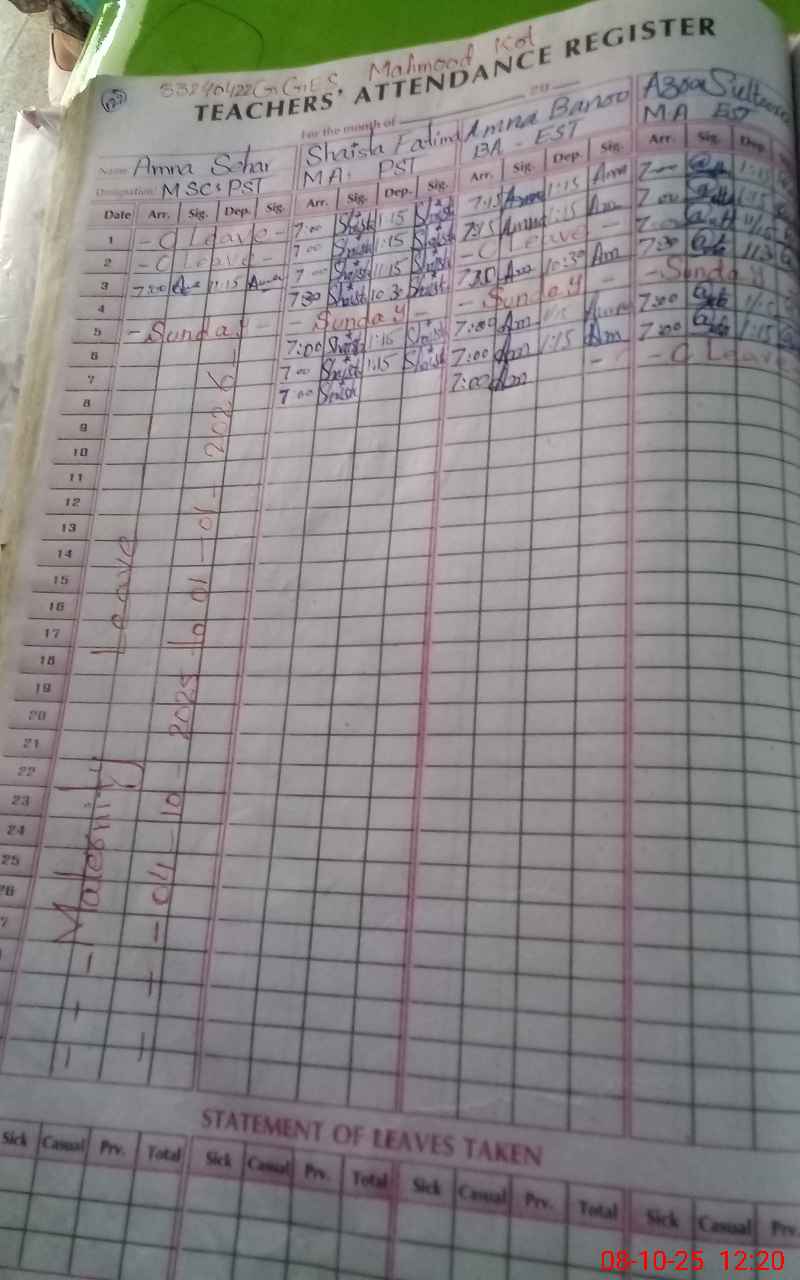 33240422 GGES Mahmood Kot
TEACHERS' ATTENDANCE REGISTER
For the month of 20
Name Amna Sehar Shaista Fatima Amna Banoo Azra Sultana
Designation MSC: PST MA: PST BA - EST MA EST
Date Arr. Sig. Dep. Sig. Arr. Sig. Dep. Sig. Arr. Sig. Dep. Sig. Arr. Sig. Dep.
1 - C Leave - 7:00 Shaista 1:15 Shaista 7:15 Amna 1:15 Amna 7:00 1:15
2 - C Leave - 7 00 Shaista 1:15 Shaista 7:15 Amna 1:15 Am 7 00 1:15
3 7:00 1:15 Amna 7 00 Shaista 1:15 Shaista - C Leave - 7:00
4 7:30 Shaista 10:30 Shaista 7:30 Am 10:30 Am 7:30 11:30
5 - Sunday - - Sunday - - Sunday - - Sunday
6 7:00 Shaista 1:15 Shaista 7:00 Am 1:15 Amna 7:00
7 7 00 Shaista 1:15 Shaista 7:00 Am 1:15 Am 7:00 1:15
8 7 00 Shaista 7:00 Am - C Leave
9
10
11
12
13
14
15
16
17
18
19
20
21
22
23
24
25
26
7
- - - Maternity Leave
- - - 04 - 10 - 2025 to 01 - 01 - 2026 -
STATEMENT OF LEAVES TAKEN
Sick Casual Prv. Total Sick Casual Prv. Total Sick Casual Prv. Total Sick Casual Prv.
08-10-25 12:20